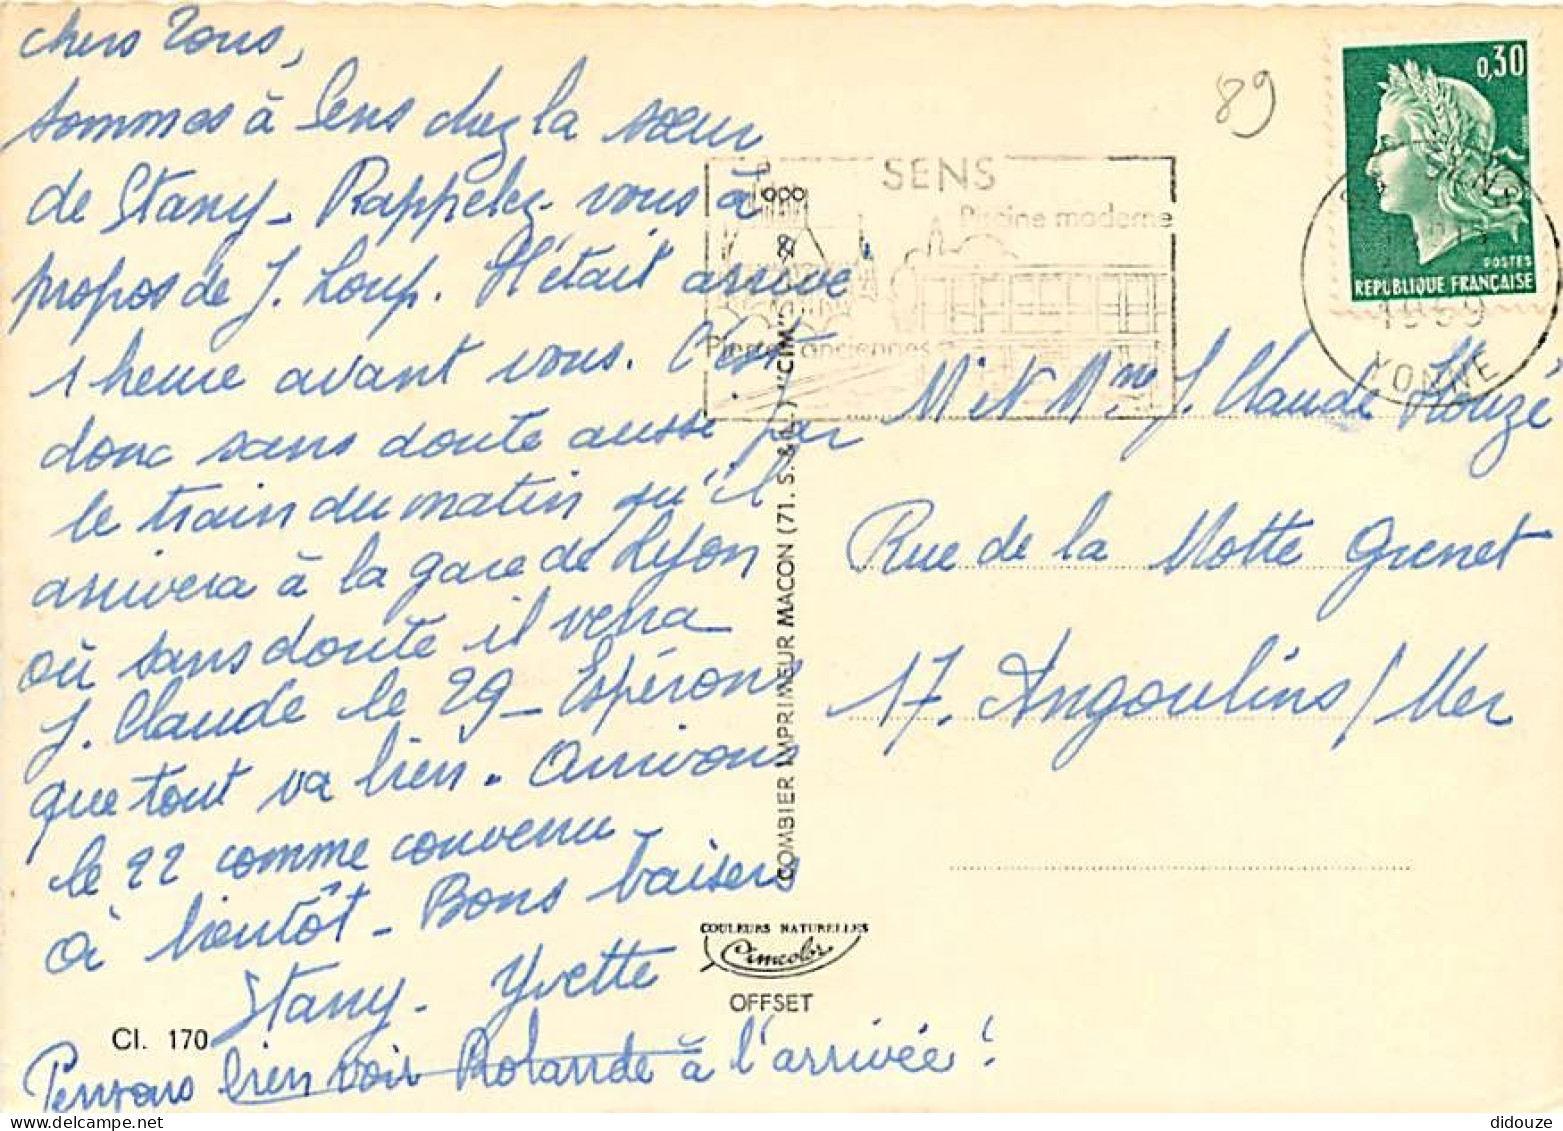 chers Tous,
sommes à Sens chez la sœur
de Stany - Rappelez-vous à
propos de J. Loup. Il était arrivé
1 heure avant vous. C'est
donc sans doute aussi par
le train du matin qu'il
arrivera à la gare de Lyon
où sans doute il verra
J. Claude le 29 - Espérons
que tout va bien. Arrivons
le 22 comme convenu
à bientôt - Bons baisers
Stany - Yvette
Pensons bien voir Rolande à l'arrivée !
Cl. 170
89
SENS
Piscine moderne
Pierres anciennes
0,30
POSTES
REPUBLIQUE FRANÇAISE
YONNE
M et Mme J. Claude
Rue de la Motte Grenet
17. Angoulins/Mer
COMBIER IMPRIMEUR MACON (71. S. & L.) "CIM"
COULEURS NATURELLES
Cimcolor
OFFSET
didouze